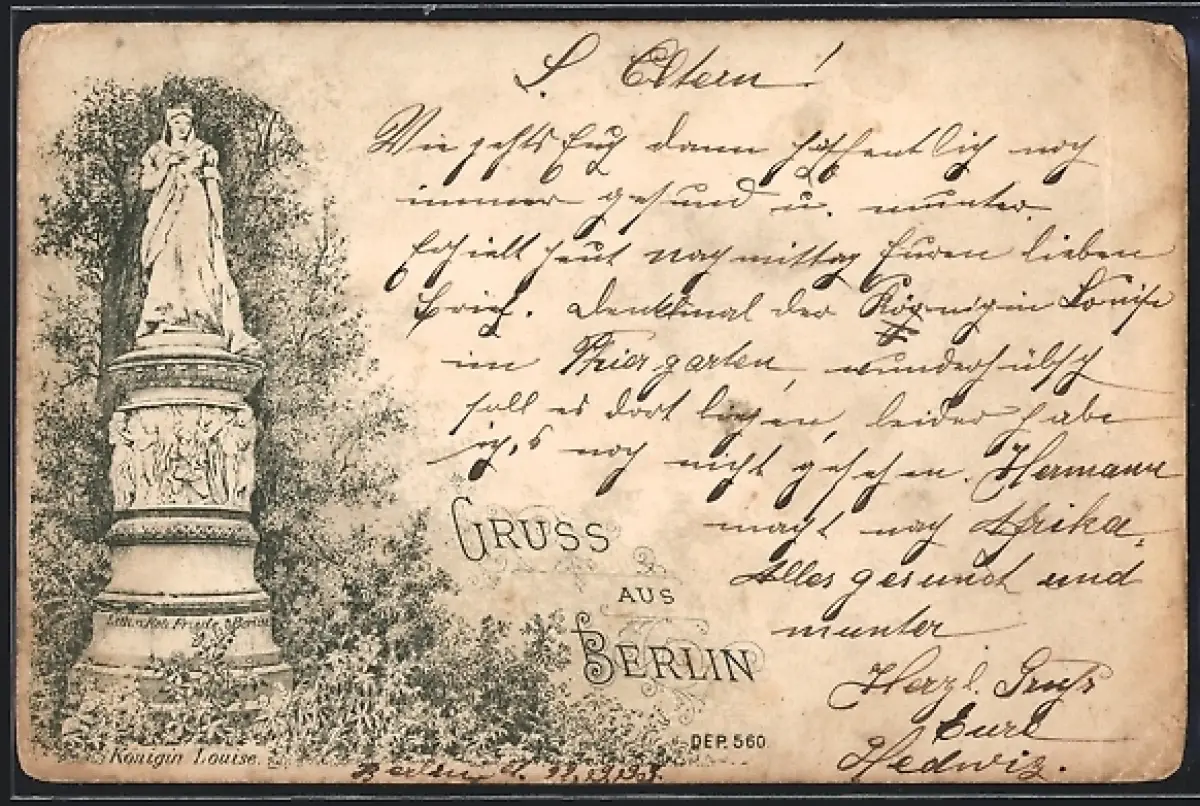 L. Eltern!
Wie gehts Euch dann hoffentlich noch
immer gesund u. munter.
Erhielt heut nachmittag Euren lieben
Brief. Denkmal der Königin Louise
im Thiergarten, wunderhübsch
soll es dort liegen, leider habe
ich's noch nicht gesehen. Hermann
macht nach Afrika.
Alles gesund und
munter
Herzl. Gruß
Eure
Hedwig.
GRUSS
AUS
BERLIN
DEP. 560
Lith. v. Rob. Friede, Berlin
Königin Louise.
Berlin, d.